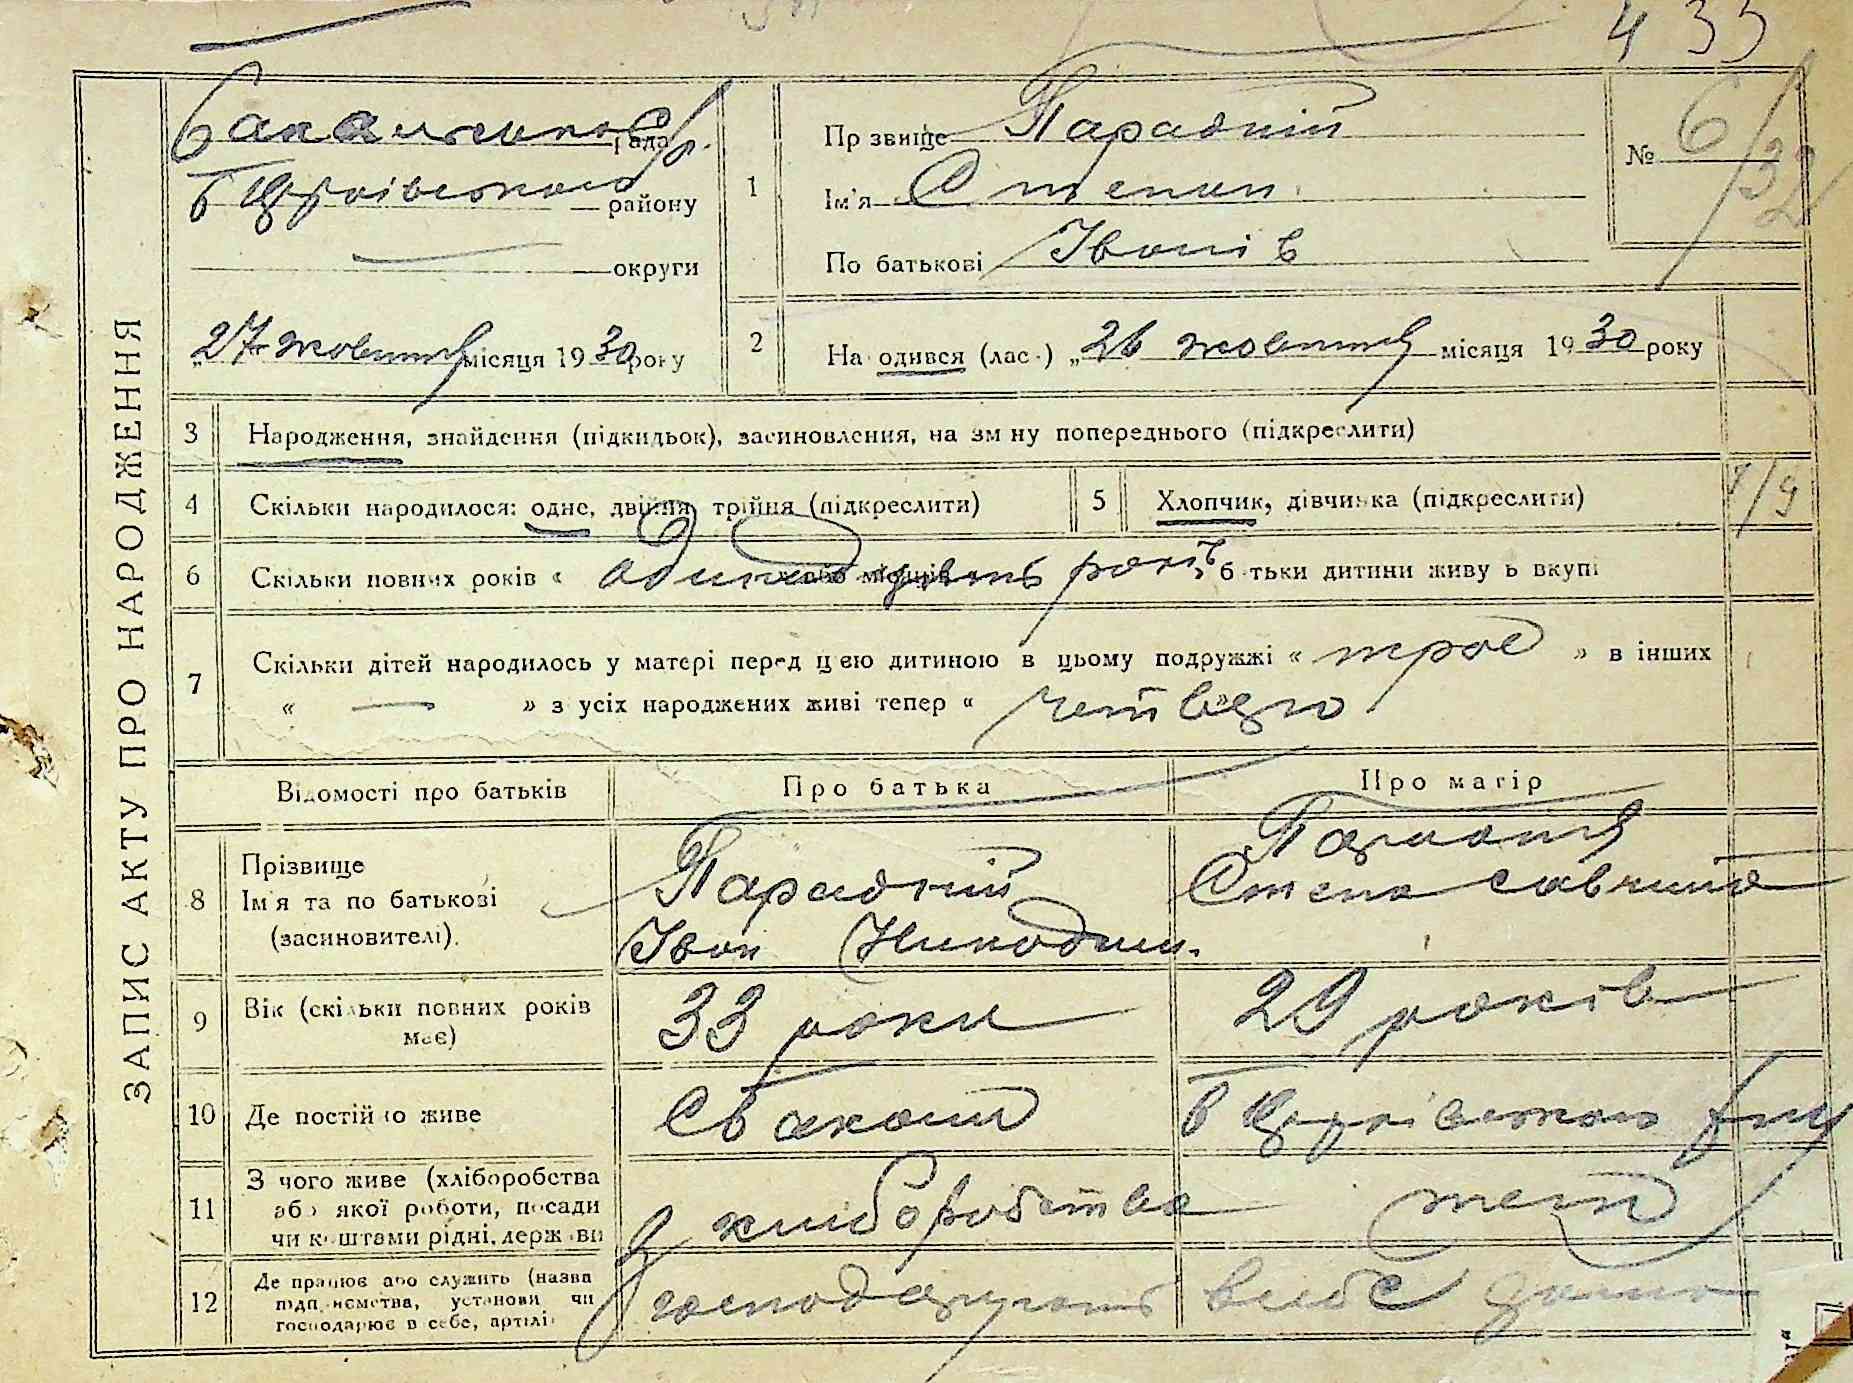 433
рада
Б Церківського району
округи
27 жовтня місяця 1930 року
1
Пр звище Парадній
Ім'я Степан
По батькові Іванів
№ 6/32
2
На одився (лас.) „26 жовтня місяця 1930 року
ЗАПИС АКТУ ПРО НАРОДЖЕННЯ
3 Народження, знайдення (підкидьок), засиновлення, на зм ну попереднього (підкреслити)
4 Скільки народилося: одне, двійня, трійня (підкреслити)
5 Хлопчик, дівчинка (підкреслити)
1/9
6 Скільки повних років « одинадцять років б тьки дитини живу ь вкупі
7 Скільки дітей народилось у матері перед цією дитиною в цьому подружжі « троє » в інших
« — » з усіх народжених живі тепер « четверо
Відомості про батьків Про батька Про матір
8 Прізвище
Ім'я та по батькові
(засиновителі).
Парадній
Іван Никодим.
Степа Савчина
9 Вік (скільки повних років
має)
33 роки 29 років
10 Де постійно живе
с Бакали Б Церківського р-ну
11 З чого живе (хліборобства
або якої роботи, посади
чи коштами рідні, держави
з хліборобства теж
12 Де працює або служить (назва
підприємства, установи чи
господарює в себе, артілі
господарують вдома